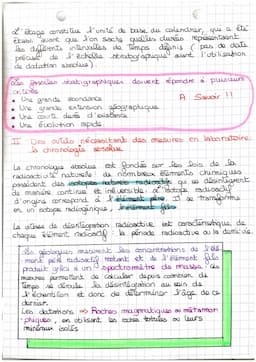 L'étage constitue l'unité de base du calendrier, qui a été
établi avant que l'on sache quelles durées représentaient
les différents intervalles de temps définis (pas de date
précise de l'échelle stratigraphique avant l'utilisation
de datation absolue).
Les fossiles stratigraphiques doivent répondre à plusieurs
critères
• Une grande abondance
A Savoir !!
• Une grande extension géographique
• Une courte durée d'existence
• Une évolution rapide.
II Des outils nécessitant des mesures en laboratoire:
la chronologie absolue
La chronologie absolue est fondée sur les lois de la
radioactivité naturelle de nombreux éléments chimiques
possédant des isotopes naturels radioactifs qui se désintègrent
de manière continue et irréversible. L'isotope radioactif
d'origine correspond à l'élément père. Il se transforme
en un isotope radiogénique, l'élément fils.
La vitesse de désintégration radioactive est caractéristique de
chaque élément radioactif : la période radioactive ou la demi-vie.
Les géologues mesurent les concentrations de l'élé-
ment père radioactif restant et de l'élément fils
produit grâce à un spectromètre de masse. Ces
mesures permettent de calculer depuis combien de
temps se déroule la désintégration au sein de
l'échantillon et donc de déterminer l'âge de ce
dernier.
Les datations → Roches magmatiques ou métamor-
phiques, en utilisant les roches totales ou leurs
minéraux isolés